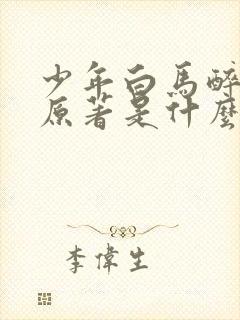 少年白馬醉
原著是什麼
李偉生